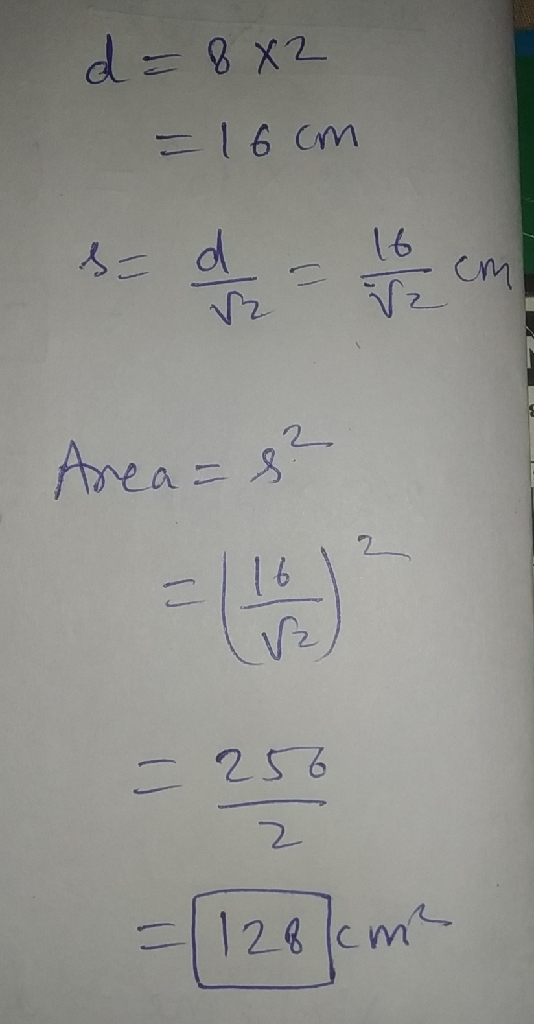 d = 8 × 2
= 16 cm
s = d/√2 = 16/√2 cm
Area = s²
= (16/√2)²
= 256/2
= 128 cm²